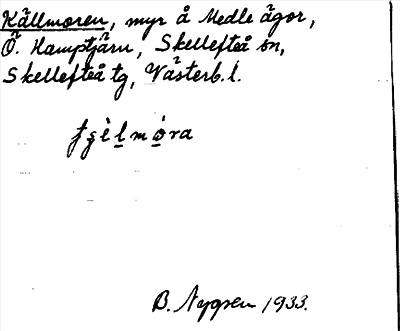 Källmoren, myr å Medle ägor,
Ö. Hamptjärn, Skellefteå sn,
Skellefteå tg, Västerb. l.
B. Nygren 1933.